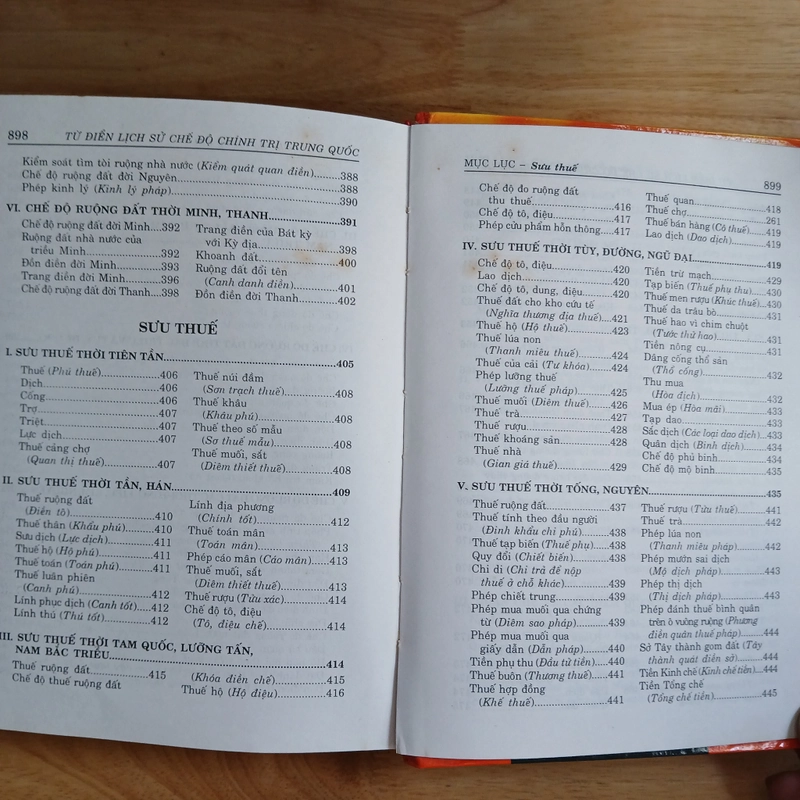 898 TỪ ĐIỂN LỊCH SỬ CHẾ ĐỘ CHÍNH TRỊ TRUNG QUỐC
Kiểm soát tìm tòi ruộng nhà nước (Kiểm quát quan điền)..........388
Chế độ ruộng đất đời Nguyên..........388
Phép kinh lý (Kinh lý pháp)..........390
VI. CHẾ ĐỘ RUỘNG ĐẤT THỜI MINH, THANH..........391
Chế độ ruộng đất đời Minh..392
Ruộng đất nhà nước của
triều Minh..........392
Đồn điền đời Minh..........393
Trang điền đời Minh..........396
Chế độ ruộng đất đời Thanh..398
Trang điền của Bát kỳ
với Kỳ địa..........398
Khoanh đất..........400
Ruộng đất đổi tên
(Canh danh điền)..........401
Đồn điền đời Thanh..........402
SƯU THUẾ
I. SƯU THUẾ THỜI TIÊN TẦN..........405
Thuế (Phú thuế)..........406
Dịch..........406
Cống..........406
Trợ..........407
Triệt..........407
Lực dịch..........407
Thuế cảng chợ
(Quan thị thuế)..........407
Thuế núi đầm
(Sơn trạch thuế)..........408
Thuế khâu
(Khâu phú)..........408
Thuế theo số mẫu
(Sơ thuế mẫu)..........408
Thuế muối, sắt
(Diêm thiết thuế)..........408
II. SƯU THUẾ THỜI TẦN, HÁN..........409
Thuế ruộng đất
(Điền tô)..........410
Thuế thân (Khẩu phú)..........410
Sưu dịch (Lực dịch)..........411
Thuế hộ (Hộ phú)..........411
Thuế toán (Toán phú)..........411
Thuế luân phiên
(Canh phú)..........412
Lính phục dịch (Canh tốt)..........412
Lính thú (Thú tốt)..........412
Lính địa phương
(Chính tốt)..........412
Thuế toán mân
(Toán mân)..........413
Phép cáo mân (Cáo mân)..........413
Thuế muối, sắt
(Diêm thiết thuế)..........413
Thuế rượu (Tửu xác)..........414
Chế độ tô, điệu
(Tô, điệu chế)..........414
III. SƯU THUẾ THỜI TAM QUỐC, LƯỠNG TẤN,
NAM BẮC TRIỀU..........414
Thuế ruộng đất..........415
Chế độ thuế ruộng đất
(Khóa điền chế)..........415
Thuế hộ (Hộ điệu)..........416
MỤC LỤC – Sưu thuế 899
Chế độ đo ruộng đất
thu thuế..........416
Chế độ tô, điệu..........417
Phép cửu phẩm hỗn thông..........417
Thuế quan..........418
Thuế chợ..........261
Thuế bán hàng (Cô thuế)..........419
Lao dịch (Dao dịch)..........419
IV. SƯU THUẾ THỜI TÙY, ĐƯỜNG, NGŨ ĐẠI..........419
Chế độ tô, điệu..........420
Lao dịch..........420
Chế độ tô, dung, điệu..........420
Thuế đất cho kho cứu tế
(Nghĩa thương địa thuế)..........421
Thuế hộ (Hộ thuế)..........423
Thuế lúa non
(Thanh miêu thuế)..........424
Thuế của cải (Tư khóa)..........424
Phép lưỡng thuế
(Lưỡng thuế pháp)..........425
Thuế muối (Diêm thuế)..........426
Thuế trà..........427
Thuế rượu..........428
Thuế khoáng sản..........428
Thuế nhà
(Gian giá thuế)..........429
Tiền trừ mạch..........430
Tạp biến (Thuế phụ thu)..........430
Thuế men rượu (Khúc thuế)..430
Thuế da trâu bò..........431
Thuế hao vì chim chuột
(Tước thử hao)..........431
Tiền nông cụ..........431
Dâng cống thổ sản
(Thổ cống)..........432
Thu mua
(Hòa dịch)..........432
Mua ép (Hòa mãi)..........433
Tạp dao..........433
Sắc dịch (Các loại dao dịch)..........433
Quân dịch (Binh dịch)..........434
Chế độ phủ binh..........434
Chế độ mộ binh..........435
V. SƯU THUẾ THỜI TỐNG, NGUYÊN..........435
Thuế ruộng đất..........437
Thuế tính theo đầu người
(Đinh khẩu chi phú)..........438
Thuế tạp biến (Thuế phụ)..........438
Quy đổi (Chiết biến)..........438
Chi di (Chi trả để nộp
thuế ở chỗ khác)..........439
Phép chiết trung..........439
Phép mua muối qua chứng
từ (Diêm sao pháp)..........439
Phép mua muối qua
giấy dẫn (Dẫn pháp)..........440
Tiền phụ thu (Đầu tử tiền)..........440
Thuế buôn (Thương thuế)..........441
Thuế hợp đồng
(Khế thuế)..........441
Thuế rượu (Tửu thuế)..........441
Thuế trà..........442
Phép lúa non
(Thanh miêu pháp)..........442
Phép mướn sai dịch
(Mộ dịch pháp)..........443
Phép thị dịch
(Thị dịch pháp)..........443
Phép đánh thuế bình quân
trên ô vuông ruộng (Phương
điền quân thuế pháp)..........444
Sở Tây thành gom đất (Tây
thành quát điền sở)..........444
Tiền Kinh chế (Kinh chế tiền)..........444
Tiền Tổng chế
(Tổng chế tiền)..........445